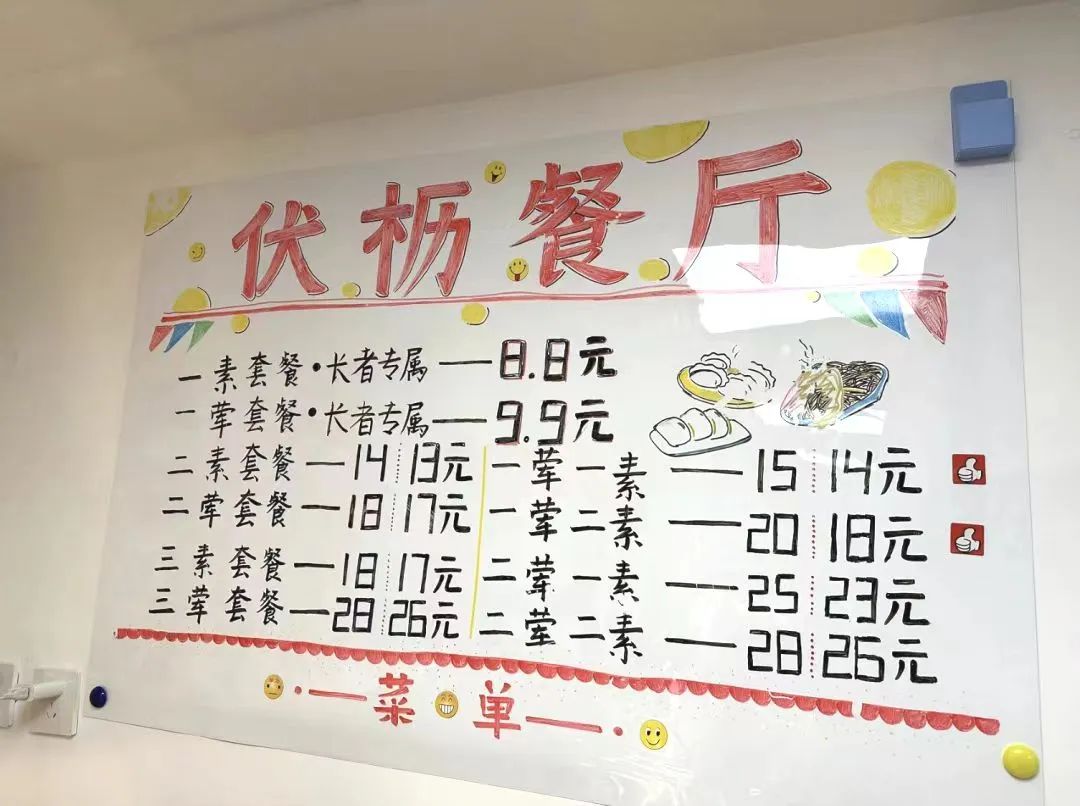 伏枥餐厅
一素套餐·长者专属——8.8元
一荤套餐·长者专属——9.9元
二素套餐—14 13元
二荤套餐—18 17元
三素套餐—18 17元
三荤套餐—28 26元
一荤一素——15 14元
一荤二素——20 18元
二荤一素——25 23元
二荤二素——28 26元
·—菜单—·